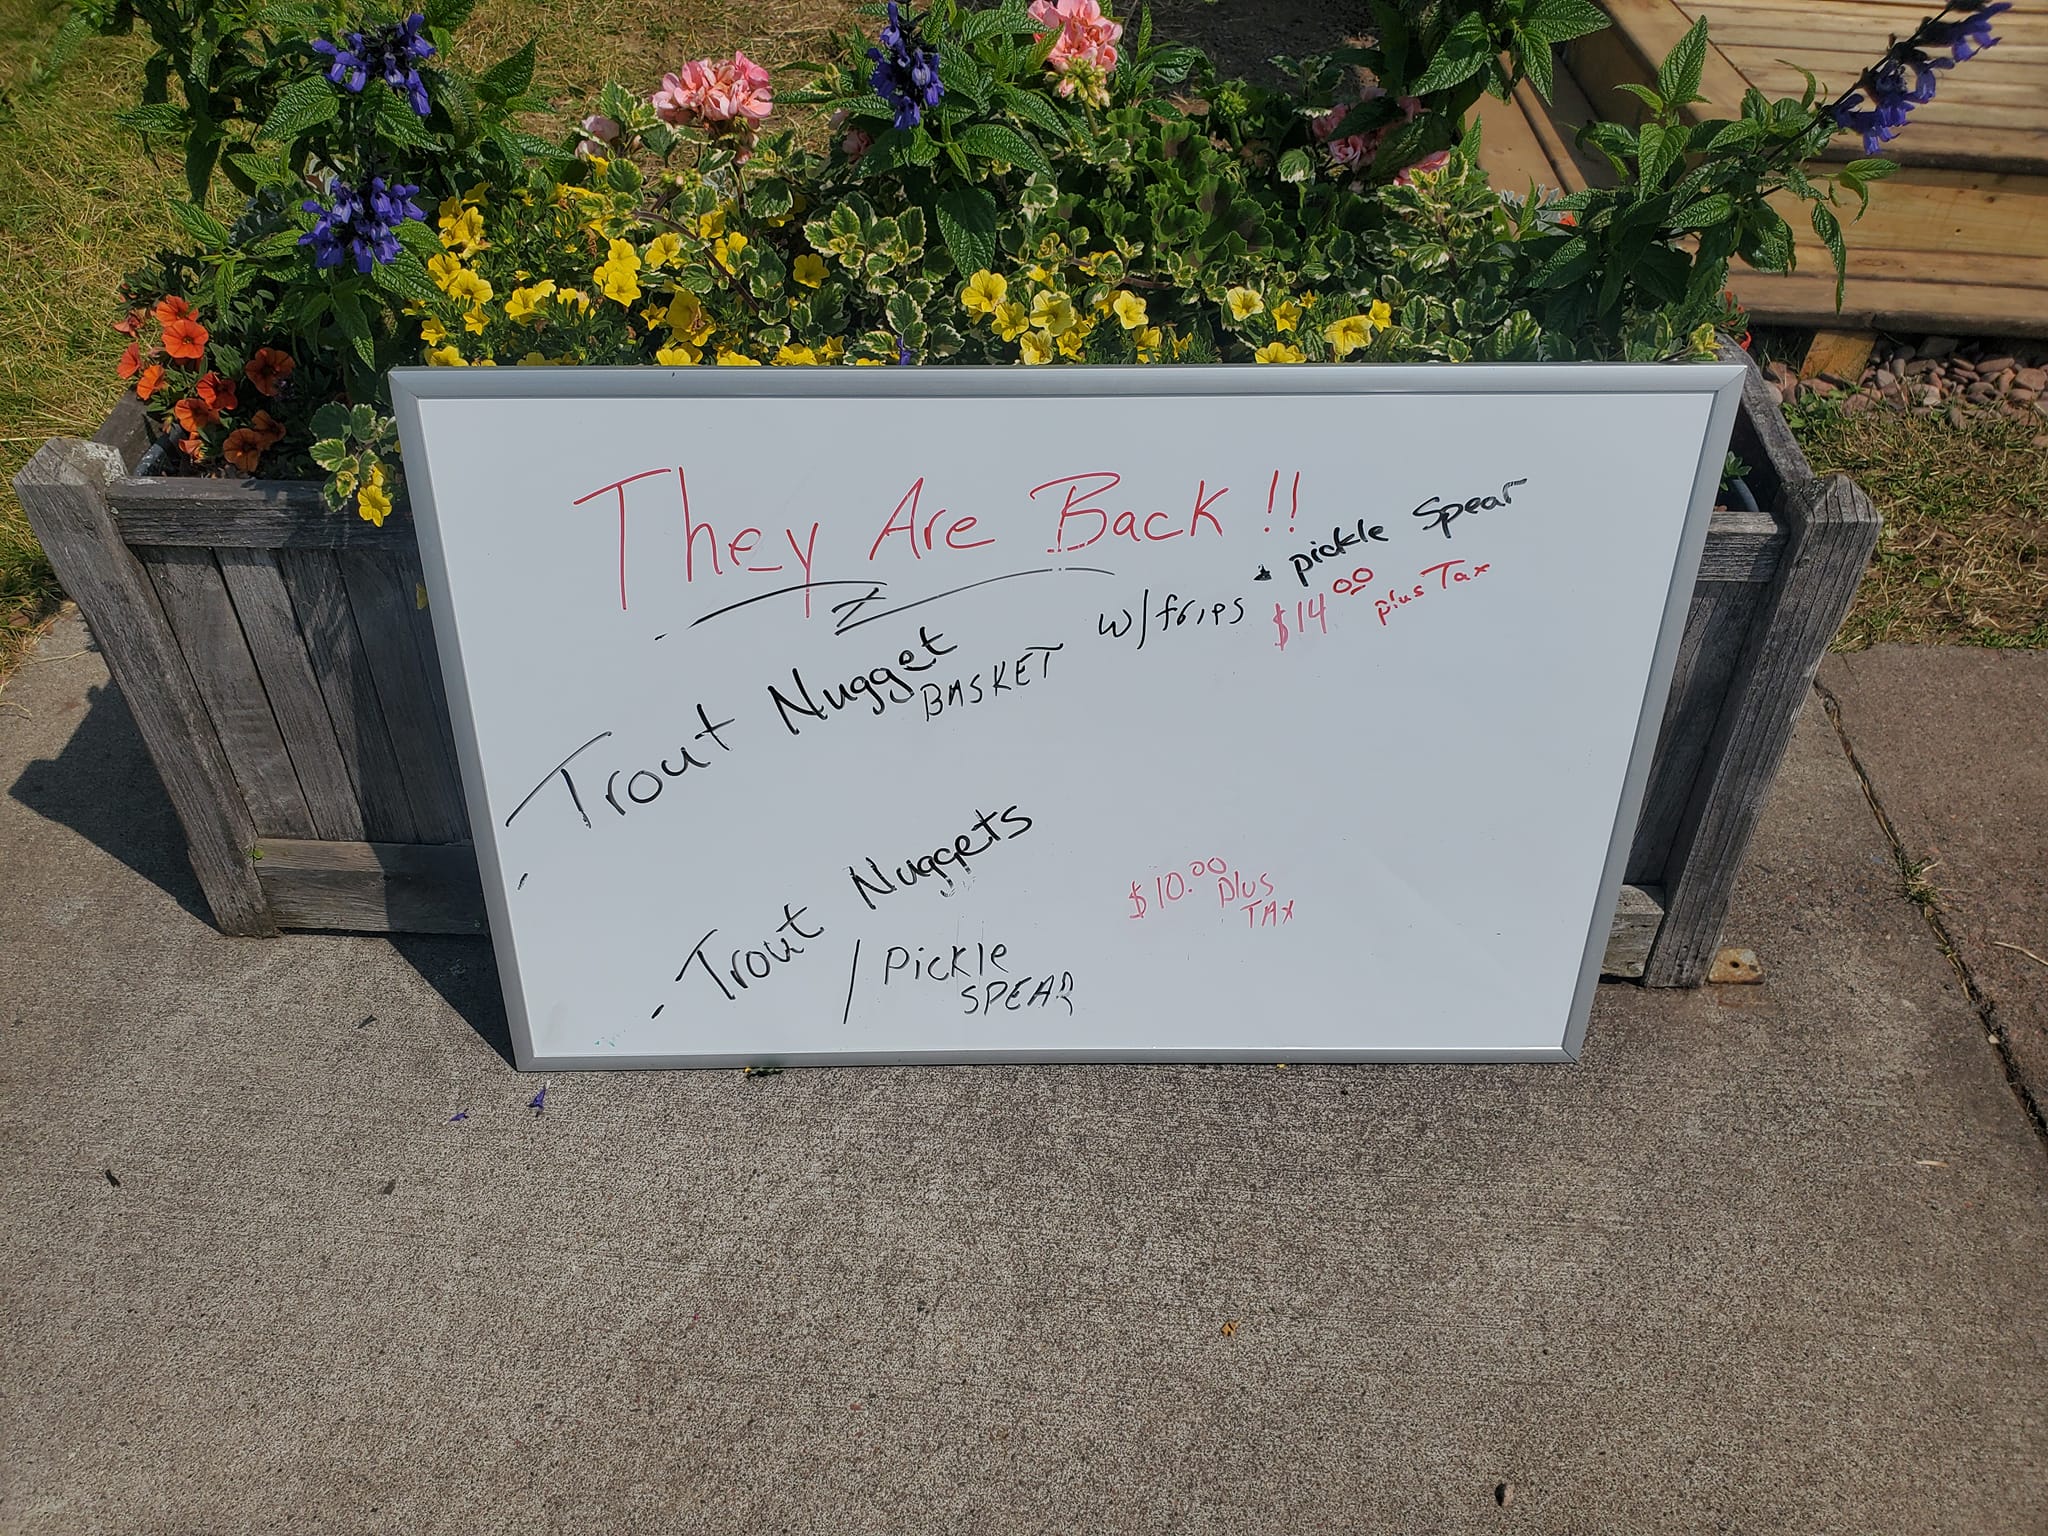 They Are Back!!
Trout Nugget
BASKET
w/
& pickle Spear
$14.00 plus Tax
- Trout Nuggets
/ Pickle
SPEAR
$10.00 plus
TAX